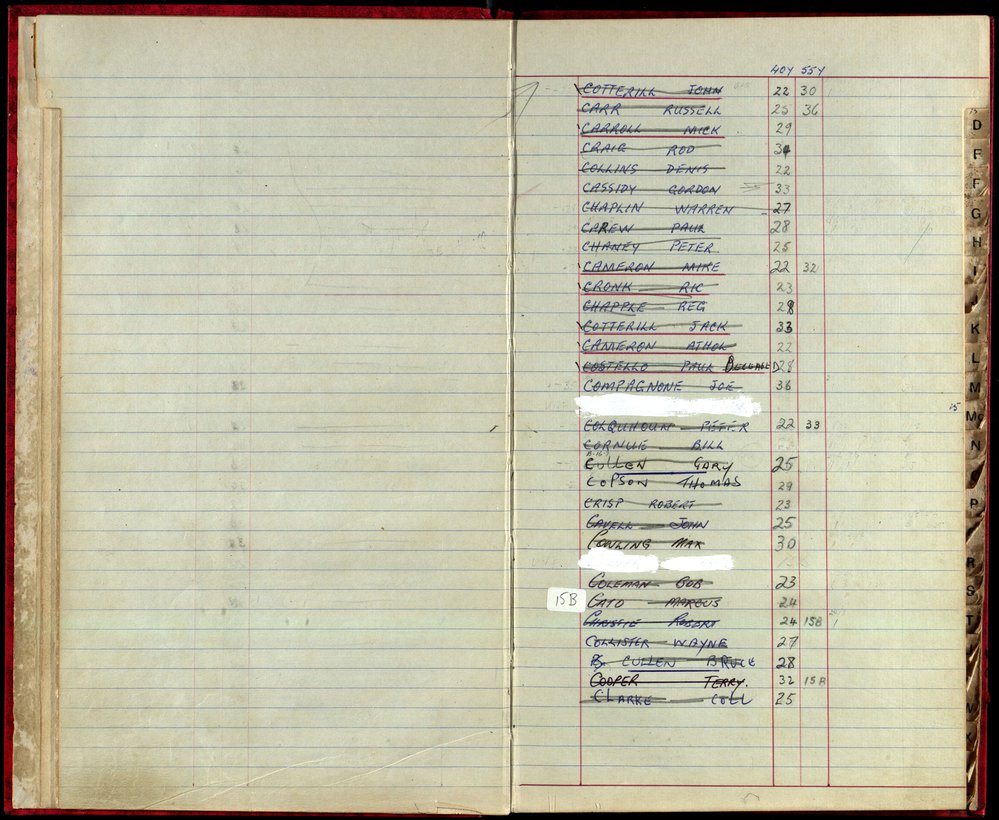 40Y 55Y
COTTERILL JOHN 22 30
CARR RUSSELL 25 36
CARROLL MICK 29
CRAIG ROD 34
COLLINS DENIS 22
CASSIDY GORDON 33
CHAPLIN WARREN 27
CAREW PAUL 28
CHANEY PETER 25
CAMERON MIKE 22 32
CRONK RIC 23
CHAPPLE REG 28
COTTERILL JACK 33
CAMERON ATHOL 22
COSTELLO PAUL DECEASED 28
COMPAGNONE JOE 36
COLQUHOUN PETER 22 33
CORNUE BILL
CULLEN GARY 25
COPSON THOMAS 29
CRISP ROBERT 23
CAVELL JOHN 25
COWLING MAX 30
COLEMAN BOB 23
15B CATO MARCUS 24
CHRISTIE ROBERT 24 15B
COLLISTER WAYNE 27
B. CULLEN BRUCE 28
COOPER TERRY. 32 15B
CLARKE COLL 25
15
D
F
F
G
H
I
J
K
L
M
15 Mc
N
P
R
S
T